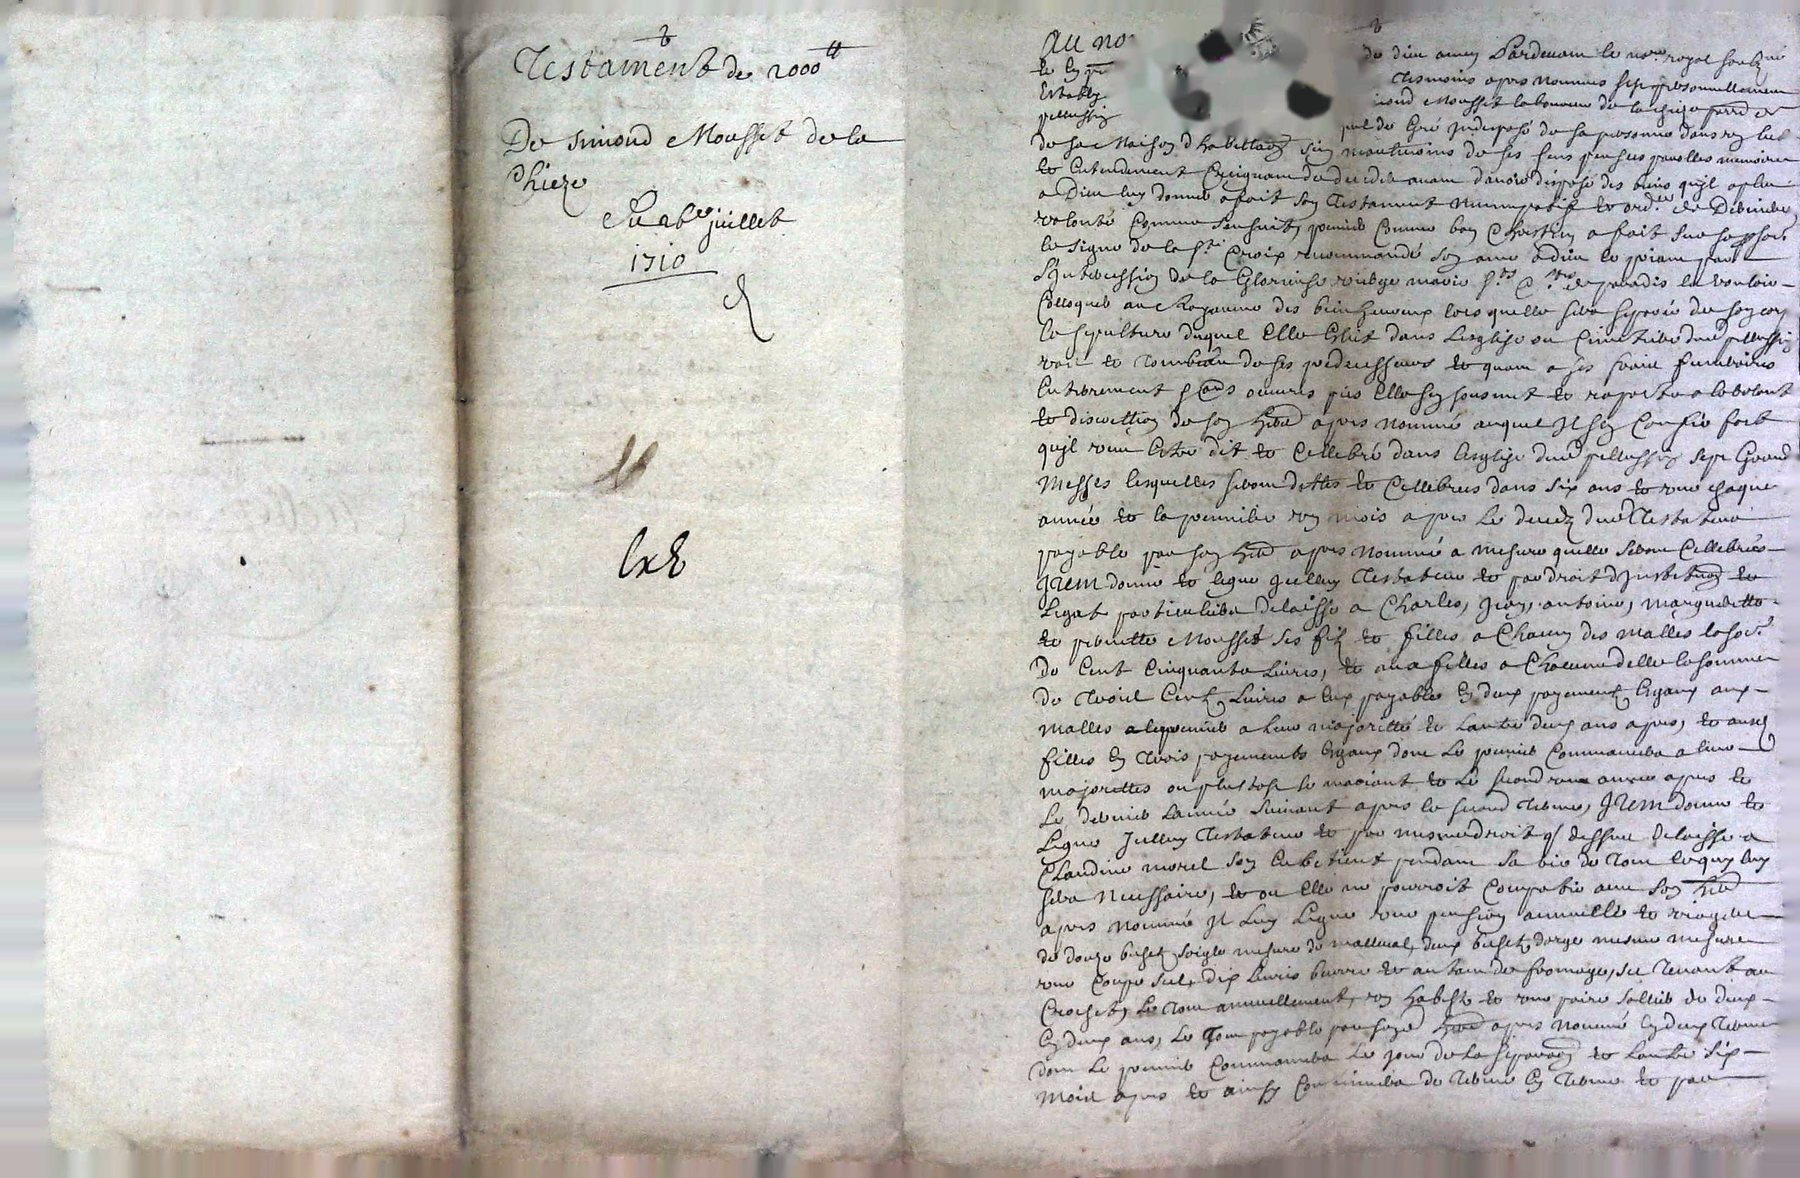 Testament de 2000tt
De simond Mousset de la
Chieze
Du 26e juillet
1710
lxE
Au no de dieu amen Pardevant le nore royal soubzné
et en pn tesmoins apres nommes fust personnellement
establ mond Mousset laboureur de la chieze parr de
pellussin quel de gré indisposé de sa personne dans son lict
de sa maison d habittaon sain neantmoins de ses sens pensees parolles memoire
et entendement Craignant de deceder avant davoir disposé des biens quil a pleu
a Dieu luy donner a fait son testament nuncupatif et ordre de derniere
volonté Comme sensuit, premier Comme bon Chrestien a fait sur sa persone
le signe de la ste Croix recommandé son ame a dieu le priant par
lintercession de la Glorieuse vierge marie sts et stes de paradis la vouloir
Colloquer au Royaume des bienheureux lors quelle sera separée de son corps
la sepulture duquel Elle Eslit dans Lesglise ou Cimetiere dud pellussin
vas et tombeau de ses predecesseurs et quant a ses frais funeraires
Enterrement et aus oeuvres pies Elle sen soubmet et raporte a la volonté
et discrettion de son herr apres nommé auquel Il sen Confie fort
quil veut Estre dit et Cellebré dans lesglise dud pellussin sept Grand
Messes lesquelles seront dittes et Cellebrees dans six ans et une chaque
année et la premiere un mois apres le deceds dud Testateur
payable par son herr apres nommé a mesure quelle seront Cellebrées
Item donne et legue Icelluy Testateur et par droit dinstitution et
Legat particuliere delaisse a Charles, Jean, antoine, margueritte
et pierrette Mousset ses fils et filles a Chacun des malles la some
de Cent Cinquante Livres, et aux filles a Chacune delle la somme
de trois Cent Livres a Eux payable En deux payement Egaux aux
malles le premier a leur majoritté et Lautre deux ans apres, et ausd
filles En trois payements Egaux dont le premier Commancera a leur
majorittes ou plustost se mariant et le second une année apres et
le dernier Lannée suivant apres le second terme, Item donne et
Legue Icelluy Testateur et par mesme droit que dessus delaisse a
Claudine morel son Entretient pendant sa vie de tout ce quy luy
sera Necessaire, et ou Elle ne pourroit Compatir avec son herr
apres nommé Il Luy Legue une pension annuelle et viagere
de douze bichet seigle mesure de malleval, deux bichet dorge mesme mesure
une Coupe sel, dix Livres beurre et autant de fromage, se tenant au
Crochet, Le tout annuellement, un habist et une paire sollier de deux
En deux ans, Le tout payable par sond herr apres nommé En deux terme
dont le premier Commancera le jour de la separaon et Lautre six
mois apres et ainsy Continuera de terme En terme et par